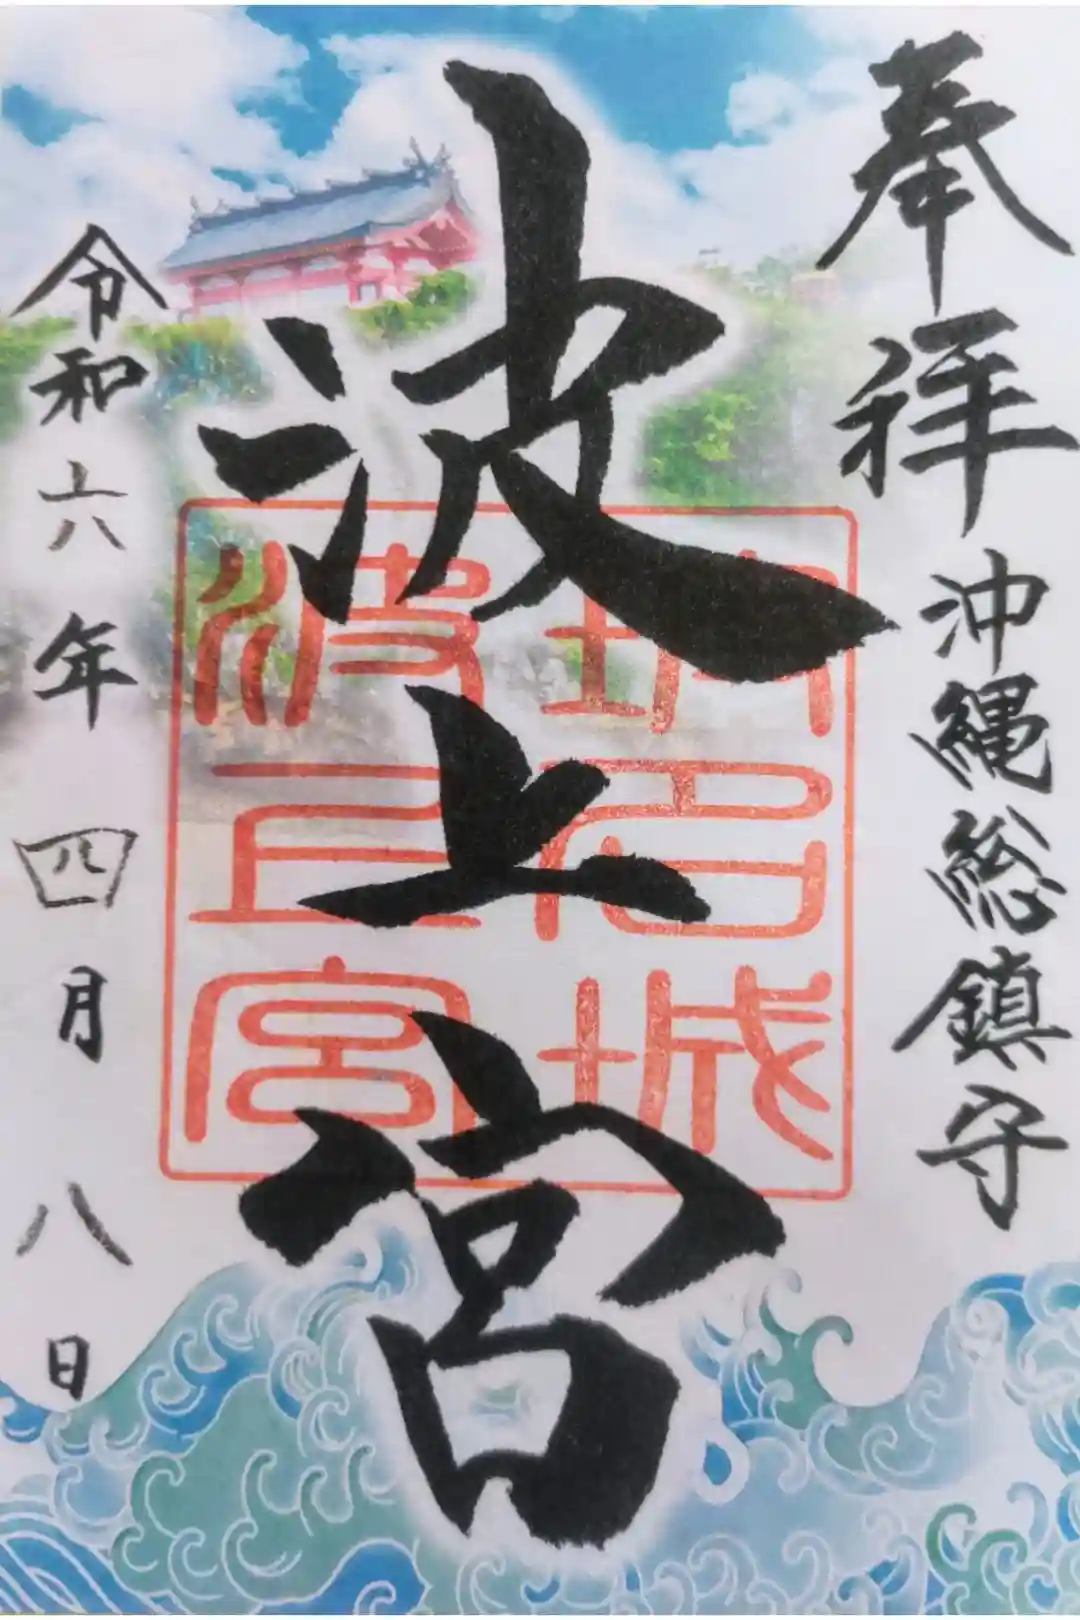 奉拝
沖縄総鎮守
波上宮
令和六年四月八日
琉球城
波上宮